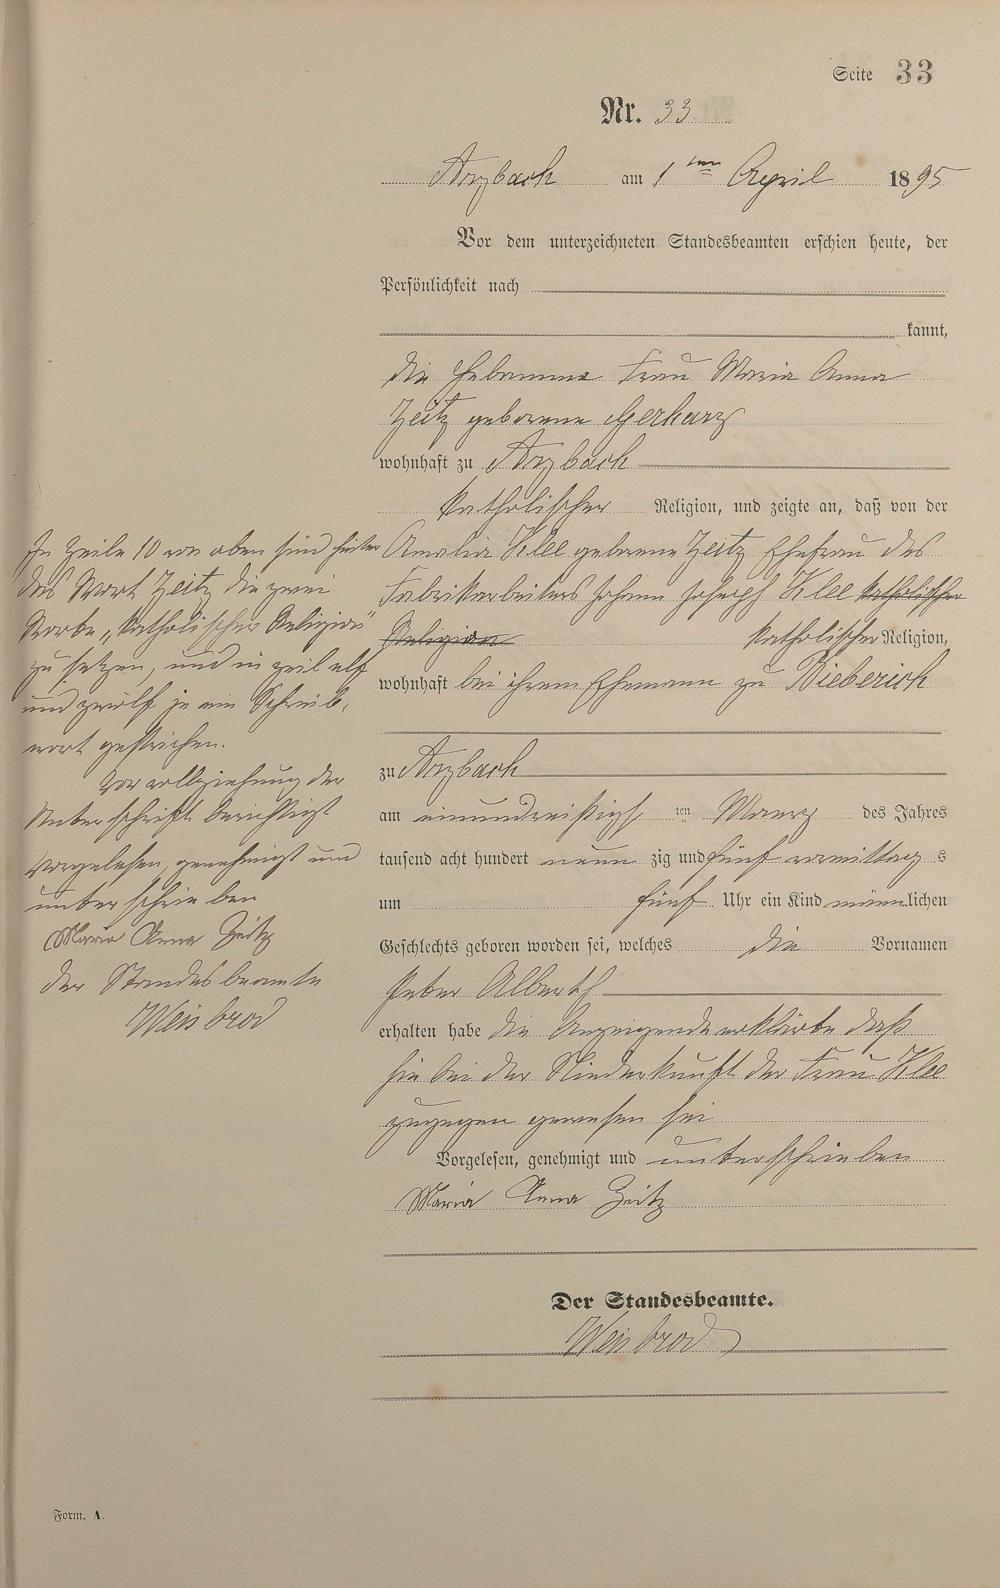 Seite 33
Nr. 33
Arzbach am 1ten April 1895
Vor dem unterzeichneten Standesbeamten erschien heute, der
Persönlichkeit nach
kannt,
die Hebamme Frau Maria Anna
Zeitz geborene Gerharz
wohnhaft zu Arzbach
katholischer Religion, und zeigte an, daß von der
Amalia Klee geborene Zeitz Ehefrau des
Fabrikarbeiters Johann Joseph Klee katholischer
Religion
katholischer Religion,
wohnhaft bei ihrem Ehemann zu Bieberich
zu Arzbach
am einunddreißigsten Maerz des Jahres
tausend acht hundert neunzig und fünf vormittags
um fünf Uhr ein Kind männlichen
Geschlechts geboren worden sei, welches die Vornamen
Peter Alberth
erhalten habe die Anzeigende erklärte daß
sie bei der Niederkunft der Frau Klee
zugegen gewesen sei
Vorgelesen, genehmigt und unterschrieben
Maria Anna Zeitz
Der Standesbeamte.
Weisbrod
In Zeile 10 von oben sind hinter
das Wort Zeitz die zwei
Worte „katholischer Religion"
zu setzen, und in zeil elf
und zwölf je ein Schreib-
wort gestrichen.
Vor vollziehung der
Unterschrift berichtigt
Vorgelesen, genehmigt und
unterschrieben
Maria Anna Zeitz
der Standesbeamte
Weisbrod
Form. A.